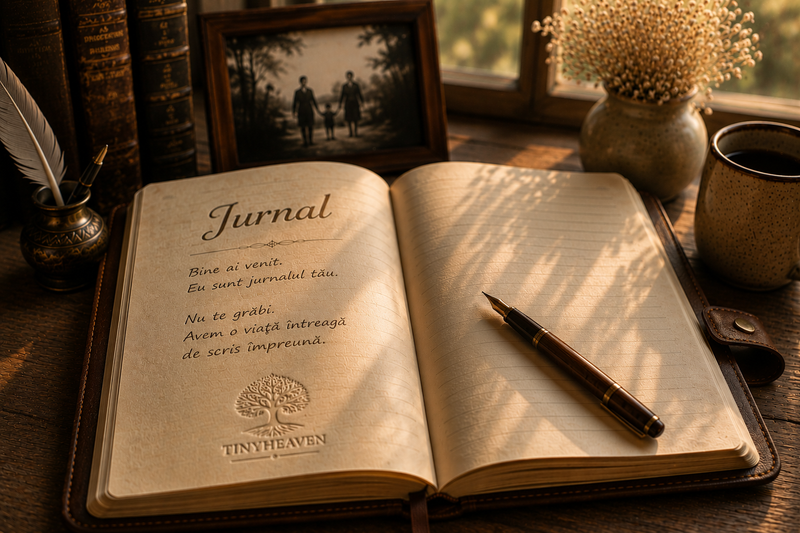 Jurnal
Bine ai venit.
Eu sunt jurnalul tău.
Nu te grăbi.
Avem o viață întreagă
de scris împreună.
TINYHEAVEN